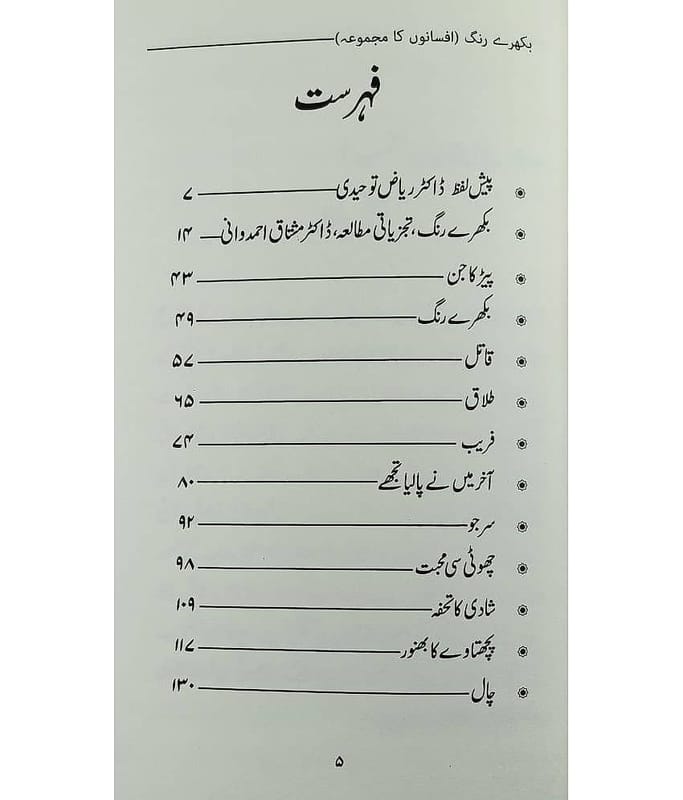 بکھرے رنگ (افسانوں کا مجموعہ)
فہرست
پیش لفظ ڈاکٹر ریاض توحیدی ۷
بکھرے رنگ، تجزیاتی مطالعہ، ڈاکٹر مشتاق احمد وانی ۱۴
پیڑ کا جن ۴۳
بکھرے رنگ ۴۹
قاتل ۵۷
طلاق ۶۵
فریب ۷۴
آخر میں نے پالیا تجھے ۸۰
سرجو ۹۲
چھوٹی سی محبت ۹۸
شادی کا تحفہ ۱۰۹
پچھتاوے کا بھنور ۱۱۷
چال ۱۳۰
۵